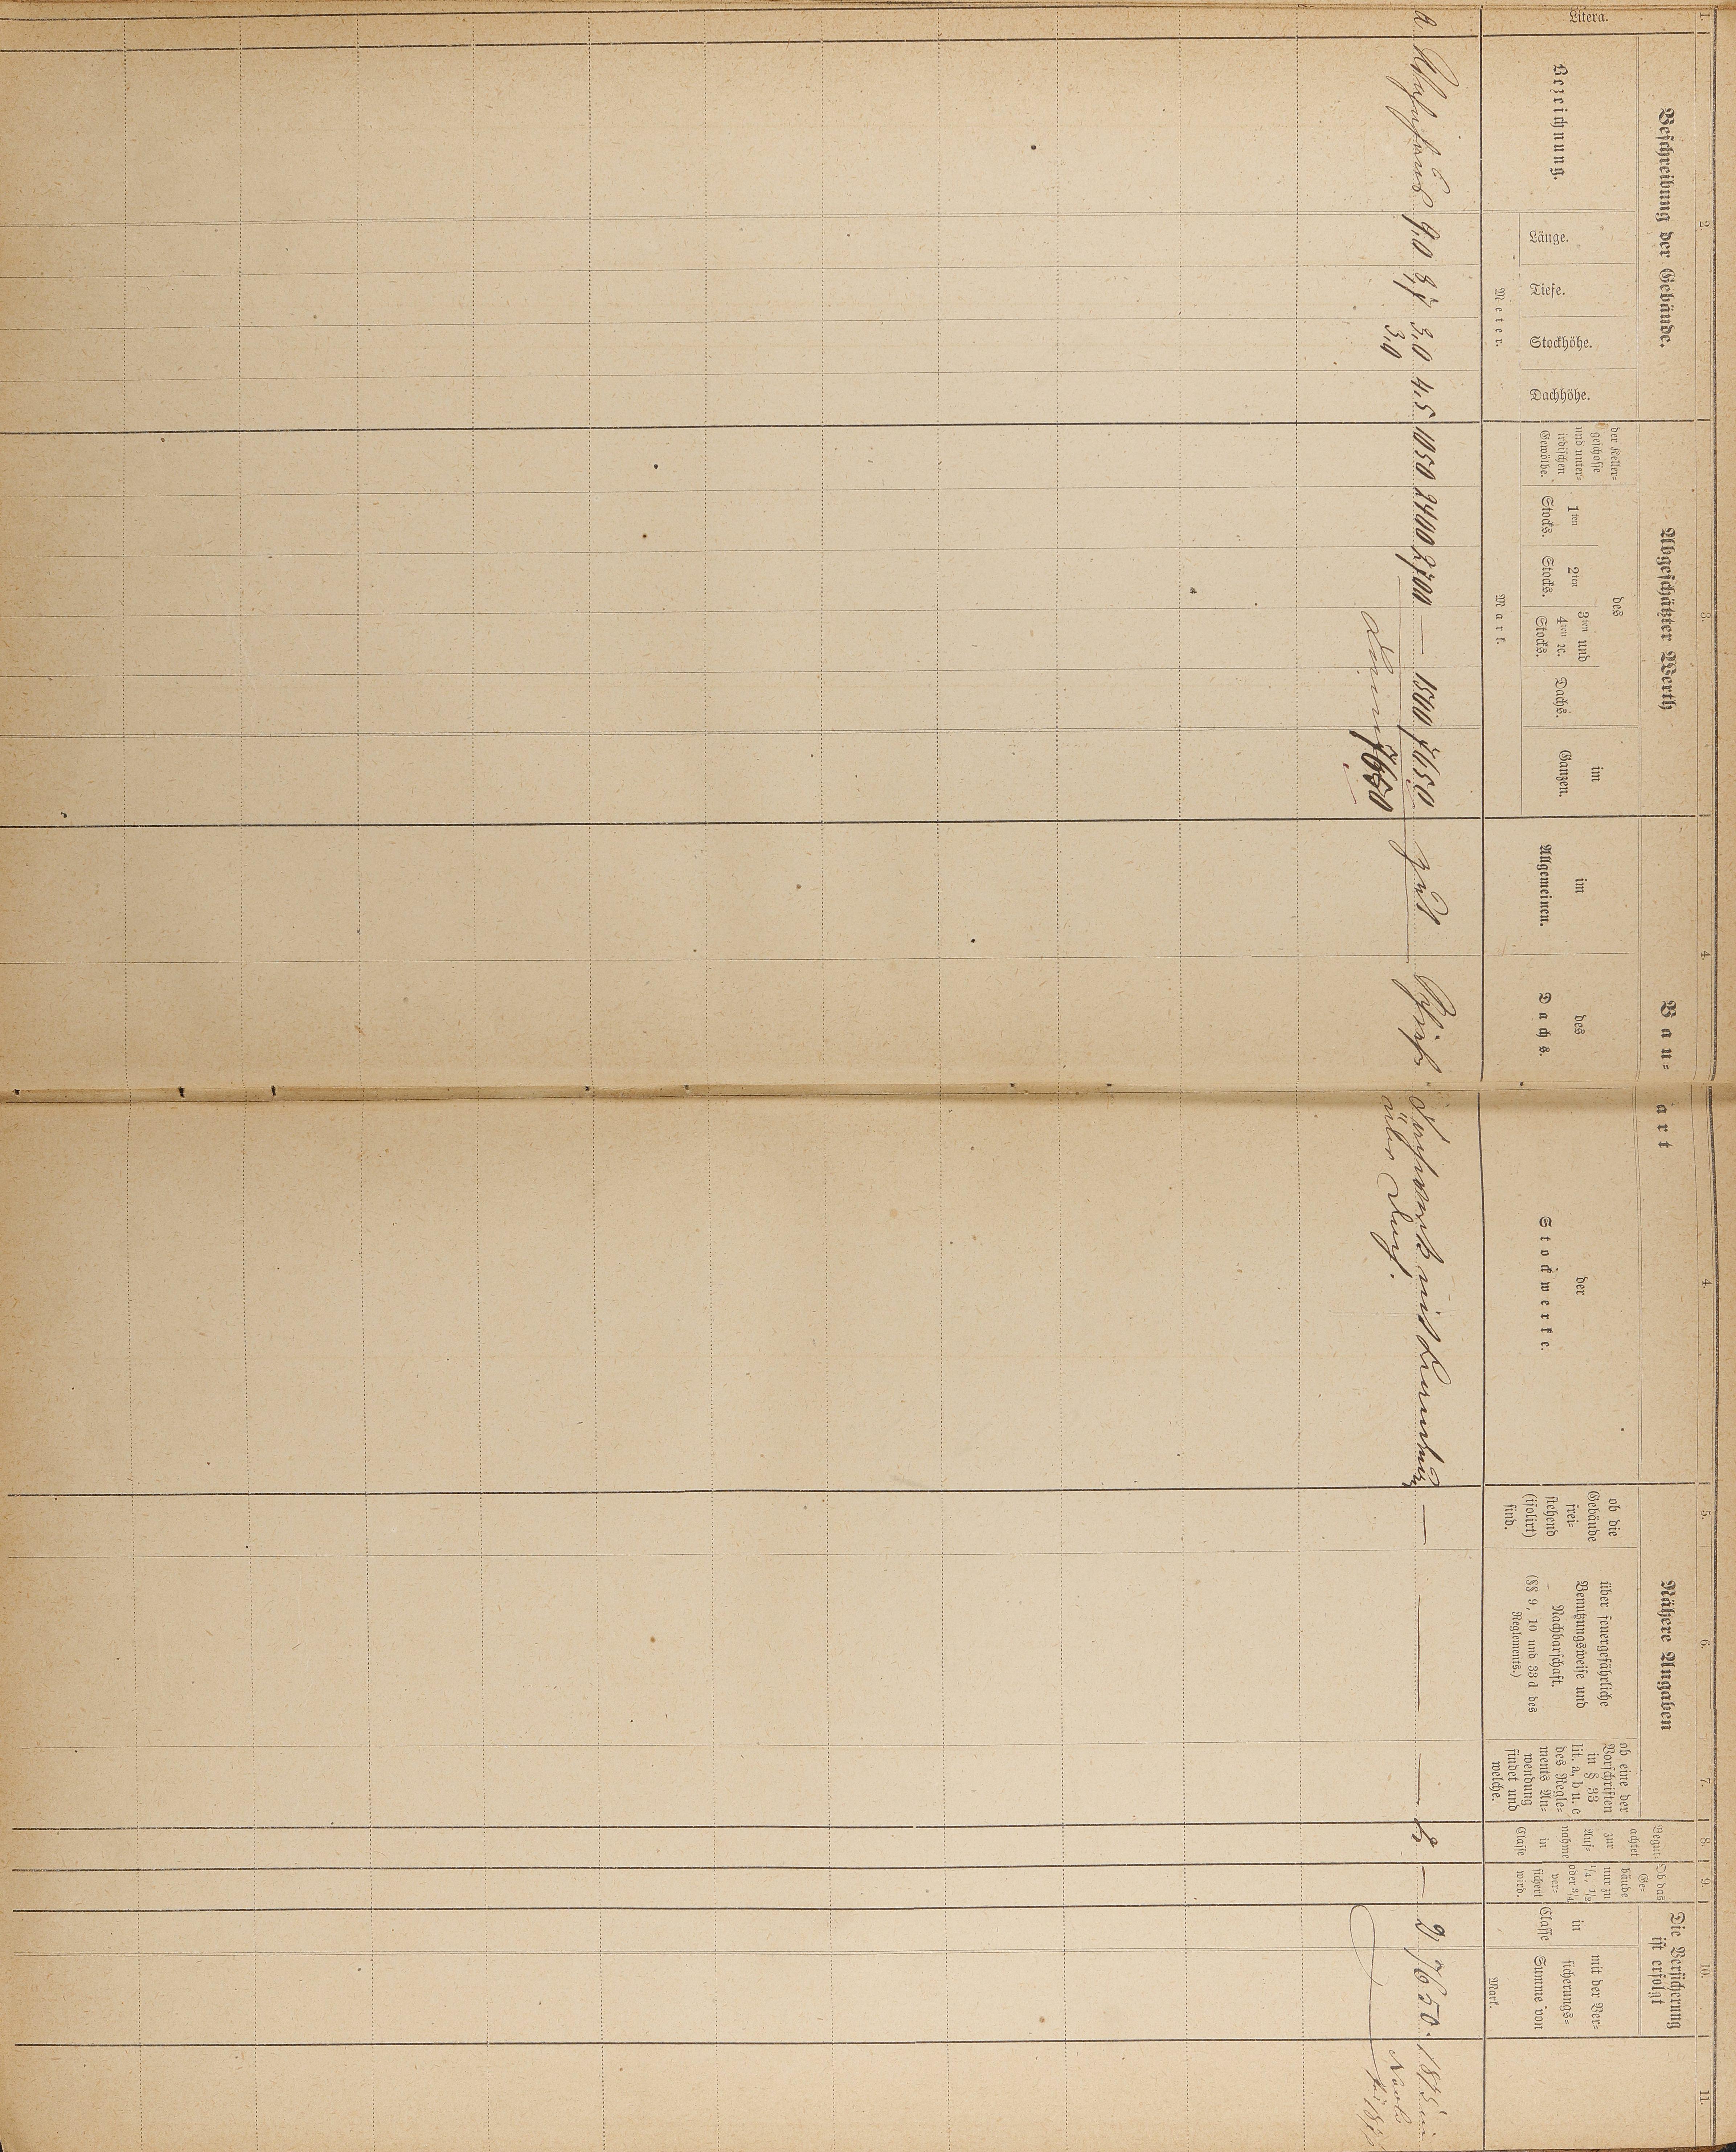 1. 2. 3. 4. 4. 5. 6. 7. 8. 9. 10. 11.
Beschreibung der Gebäude.
Litera.
Bezeichnung.
Länge.
Tiefe.
Stockhöhe.
Dachhöhe.
Meter.
Abgeschätzter Werth
des
der Keller-
geschosse
und unter-
irdischen
Gewölbe.
1ten
Stocks.
2ten
Stocks.
3ten und
4ten ꝛc.
Stocks.
Dachs.
im
Ganzen.
Mark.
Bau-
art
im
Allgemeinen.
des
Dachs.
der
Stockwerke.
Nähere Angaben
ob die
Gebäude
frei-
stehend
(isolirt)
sind.
über feuergefährliche
Benutzungsweise und
Nachbarschaft.
(§§ 9, 10 und 33 d des
Reglements.)
ob eine der
Vorschriften
in § 33
lit. a, b u. c
des Regle-
ments An-
wendung
findet und
welche.
Begut-
achtet
zur
Auf-
nahme
in
Classe
Ob das
Ge-
bäude
nur zu
1/4, 1/2
oder 3/4
ver-
sichert
wird.
Die Versicherung
ist erfolgt
in
Classe
mit der Ver-
sicherungs-
Summe von
Mark.
a Wohnhaus 9,0 8,7 3,0 4,5 1050 2400 2700 — 1500 7650 gut Schiefer Fachwerk mit — — — — 2 7650. 1875
3,0 über Durch.
Summa 7650